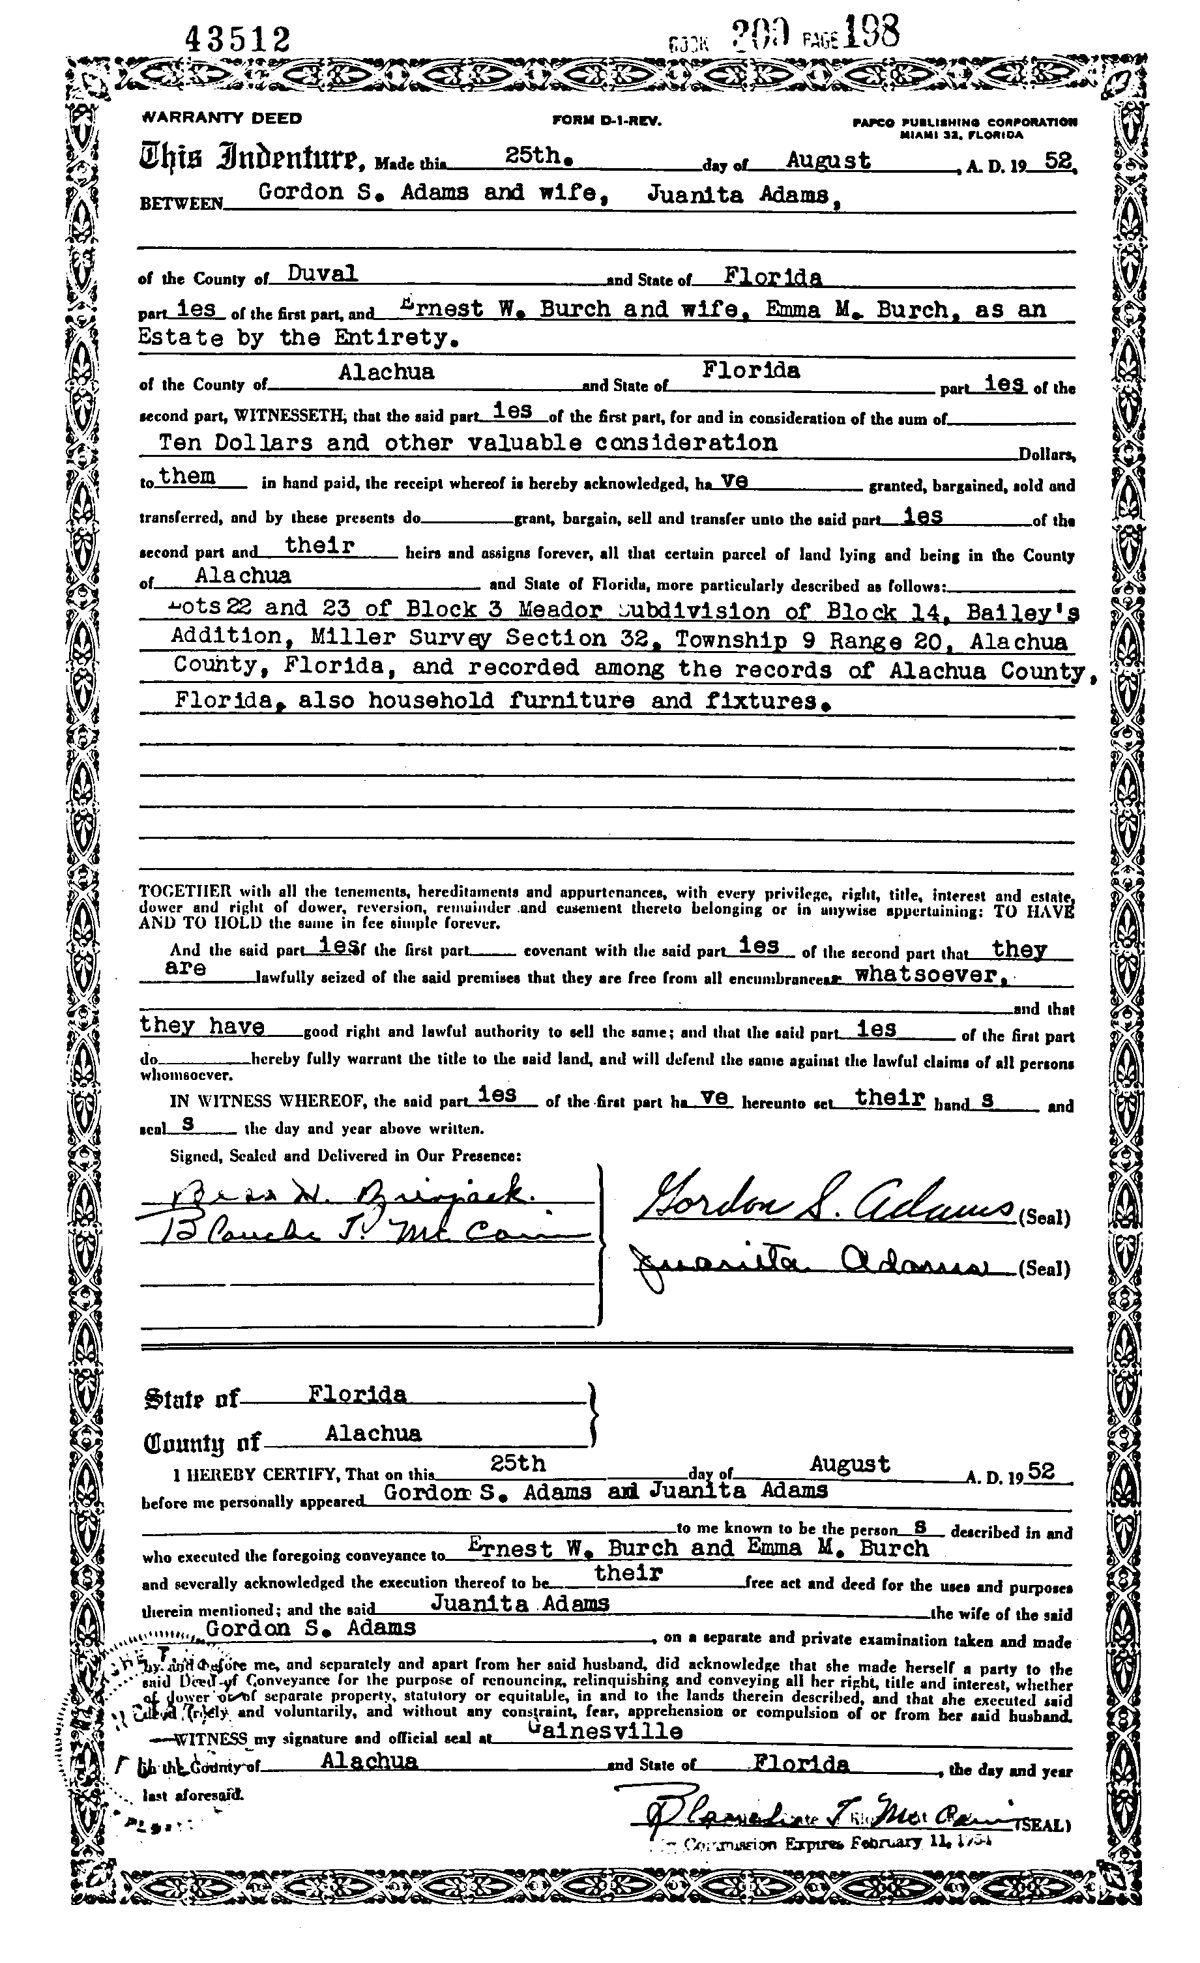 43512 BOOK 200 PAGE 198
WARRANTY DEED FORM D-1-REV. PAPCO PUBLISHING CORPORATION
MIAMI 32, FLORIDA
This Indenture, Made this 25th. day of August , A. D. 19 52,
BETWEEN Gordon S. Adams and wife, Juanita Adams,
of the County of Duval and State of Florida
part ies of the first part, and Ernest W. Burch and wife, Emma M. Burch, as an
Estate by the Entirety.
of the County of Alachua and State of Florida part ies of the
second part, WITNESSETH, that the said part ies of the first part, for and in consideration of the sum of
Ten Dollars and other valuable consideration Dollars,
to them in hand paid, the receipt whereof is hereby acknowledged, ha ve granted, bargained, sold and
transferred, and by these presents do grant, bargain, sell and transfer unto the said part ies of the
second part and their heirs and assigns forever, all that certain parcel of land lying and being in the County
of Alachua and State of Florida, more particularly described as follows:
Lots 22 and 23 of Block 3 Meador Subdivision of Block 14, Bailey's
Addition, Miller Survey Section 32, Township 9 Range 20, Alachua
County, Florida, and recorded among the records of Alachua County,
Florida, also household furniture and fixtures.
TOGETHER with all the tenements, hereditaments and appurtenances, with every privilege, right, title, interest and estate,
dower and right of dower, reversion, remainder and easement thereto belonging or in anywise appertaining: TO HAVE
AND TO HOLD the same in fee simple forever.
And the said part ies of the first part covenant with the said part ies of the second part that they
are lawfully seized of the said premises that they are free from all encumbrances whatsoever,
and that
they have good right and lawful authority to sell the same; and that the said part ies of the first part
do hereby fully warrant the title to the said land, and will defend the same against the lawful claims of all persons
whomsoever.
IN WITNESS WHEREOF, the said part ies of the first part ha ve hereunto set their hand s and
seal s the day and year above written.
Signed, Sealed and Delivered in Our Presence:
Bess H.
Gordon S. Adams (Seal)
Blanche T. McCain
Juanita Adams (Seal)
State of Florida
County of Alachua
I HEREBY CERTIFY, That on this 25th day of August A. D. 19 52
before me personally appeared Gordon S. Adams and Juanita Adams
to me known to be the person s described in and
who executed the foregoing conveyance to Ernest W. Burch and Emma M. Burch
and severally acknowledged the execution thereof to be their free act and deed for the uses and purposes
therein mentioned; and the said Juanita Adams the wife of the said
Gordon S. Adams , on a separate and private examination taken and made
by and before me, and separately and apart from her said husband, did acknowledge that she made herself a party to the
said Deed of Conveyance for the purpose of renouncing, relinquishing and conveying all her right, title and interest, whether
of dower or of separate property, statutory or equitable, in and to the lands therein described, and that she executed said
Deed freely and voluntarily, and without any constraint, fear, apprehension or compulsion of or from her said husband.
WITNESS my signature and official seal at Gainesville
in the County of Alachua and State of Florida , the day and year
last aforesaid.
Blanche T. McCain (SEAL)
Commission Expires February 11, 1954